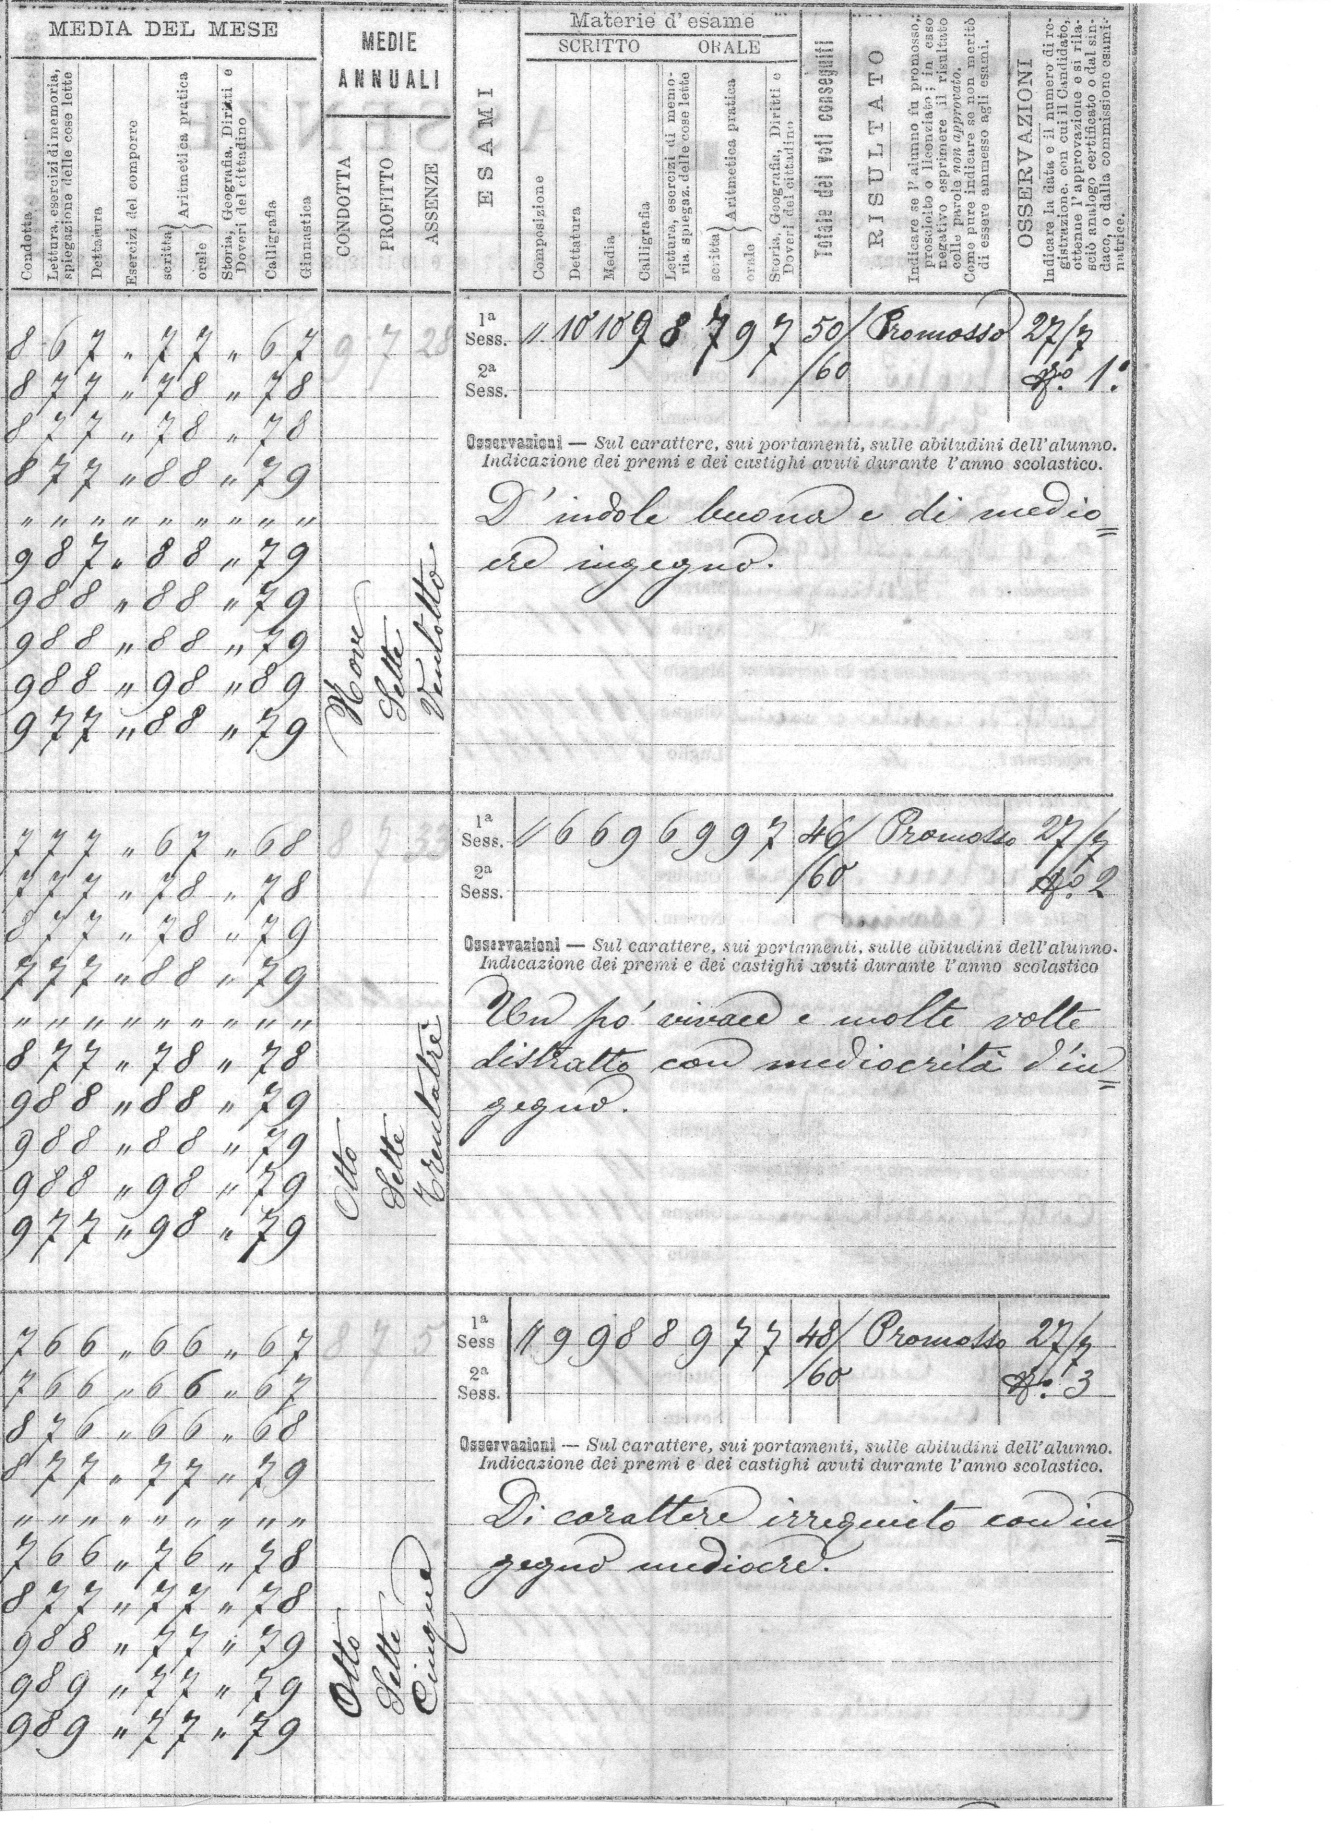 MEDIA DEL MESE
Condotta
Lettura, esercizi di memoria,
spiegazione delle cose lette
Dettatura
Esercizi del comporre
scritta
orale
Aritmetica pratica
Storia, Geografia, Diritti e
Doveri del cittadino
Calligrafia
Ginnastica
MEDIE
ANNUALI
CONDOTTA
PROFITTO
ASSENZE
ESAMI
Materie d'esame
SCRITTO ORALE
Composizione
Dettatura
Media
Calligrafia
Lettura, esercizi di memo-
ria spiegaz. delle cose lette
scritta
orale
Aritmetica pratica
Storia, Geografia, Diritti e
Doveri del cittadino
Totale dei voti conseguiti
RISULTATO
Indicare se l'alunno fu promosso,
prosciolto o licenziato; in caso
negativo esprimere il risultato
colle parole non approvato.
Come pure indicare se non meritò
di essere ammesso agli esami.
OSSERVAZIONI
Indicare la data e il numero di re-
gistrazione, con cui il Candidato,
ottenne l'approvazione e si rila-
sciò analogo certificato o dal sin-
daco, o dalla commissione esami-
natrice.
8 6 7 " 7 7 " 6 7
8 7 7 " 7 8 " 7 8
8 7 7 " 7 8 " 7 8
8 7 7 " 8 8 " 7 9
" " " " " " " " "
9 8 7 " 8 8 " 7 9
9 8 8 " 8 8 " 7 9
9 8 8 " 8 8 " 7 9
9 8 8 " 9 8 " 8 9
9 7 7 " 8 8 " 7 9
9 7 28
Nove
Sette
Ventotto
1a
Sess. " 10 10 9 8 7 9 7 50/ Promosso 27/7
2a
Sess. /60 No. 1.
Osservazioni — Sul carattere, sui portamenti, sulle abitudini dell'alunno.
Indicazione dei premi e dei castighi avuti durante l'anno scolastico.
D'indole buona e di medio=
cre ingegno.
7 7 7 " 6 7 " 6 8
7 7 7 " 7 8 " 7 8
8 7 7 " 7 8 " 7 9
7 7 7 " 8 8 " 7 9
" " " " " " " " "
8 7 7 " 7 8 " 7 8
9 8 8 " 8 8 " 7 9
9 8 8 " 8 8 " 7 9
9 8 8 " 9 8 " 7 9
9 7 7 " 9 8 " 7 9
8 7 33
Otto
Sette
Trentatrè
1a
Sess. " 6 6 9 6 9 9 7 46/ Promosso 27/7
2a
Sess. /60 No. 2
Osservazioni — Sul carattere, sui portamenti, sulle abitudini dell'alunno.
Indicazione dei premi e dei castighi avuti durante l'anno scolastico
Un pó vivace e molte volte
distratto con mediocrità d'in=
gegno.
7 6 6 " 6 6 " 6 7
7 6 6 " 6 6 " 6 7
8 7 6 " 6 6 " 6 8
8 7 7 " 7 7 " 7 9
" " " " " " " " "
7 6 6 " 7 6 " 7 8
8 7 7 " 7 7 " 7 8
9 8 8 " 7 7 " 7 9
9 8 9 " 7 7 " 7 9
9 8 9 " 7 7 " 7 9
8 7 5
Otto
Sette
Cinque
1a
Sess " 9 9 8 8 9 7 7 48/ Promosso 27/7
2a
Sess. /60 No. 3
Osservazioni — Sul carattere, sui portamenti, sulle abitudini dell'alunno.
Indicazione dei premi e dei castighi avuti durante l'anno scolastico.
Di carattere irrequieto con in=
gegno mediocre.